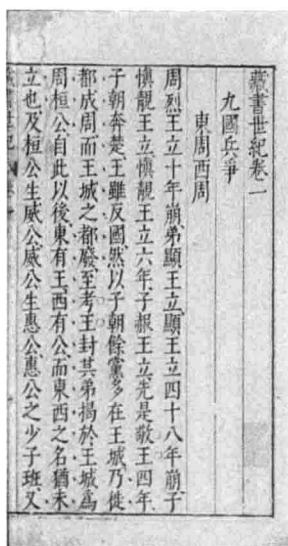 藏書世紀卷一
九國兵爭
東周西周
周烈王立十年崩弟顯王立顯王立四十八年崩子
慎靚王立慎靚王立六年子赧王立先是敬王四年
子朝奔楚王雖反國然以子朝餘黨多在王城乃徙
都成周而王城之都廢至考王封其弟揭於王城為
周桓公自此以後東有王西有公而東西之名猶未
立也及桓公生威公威公生惠公惠公之少子班又